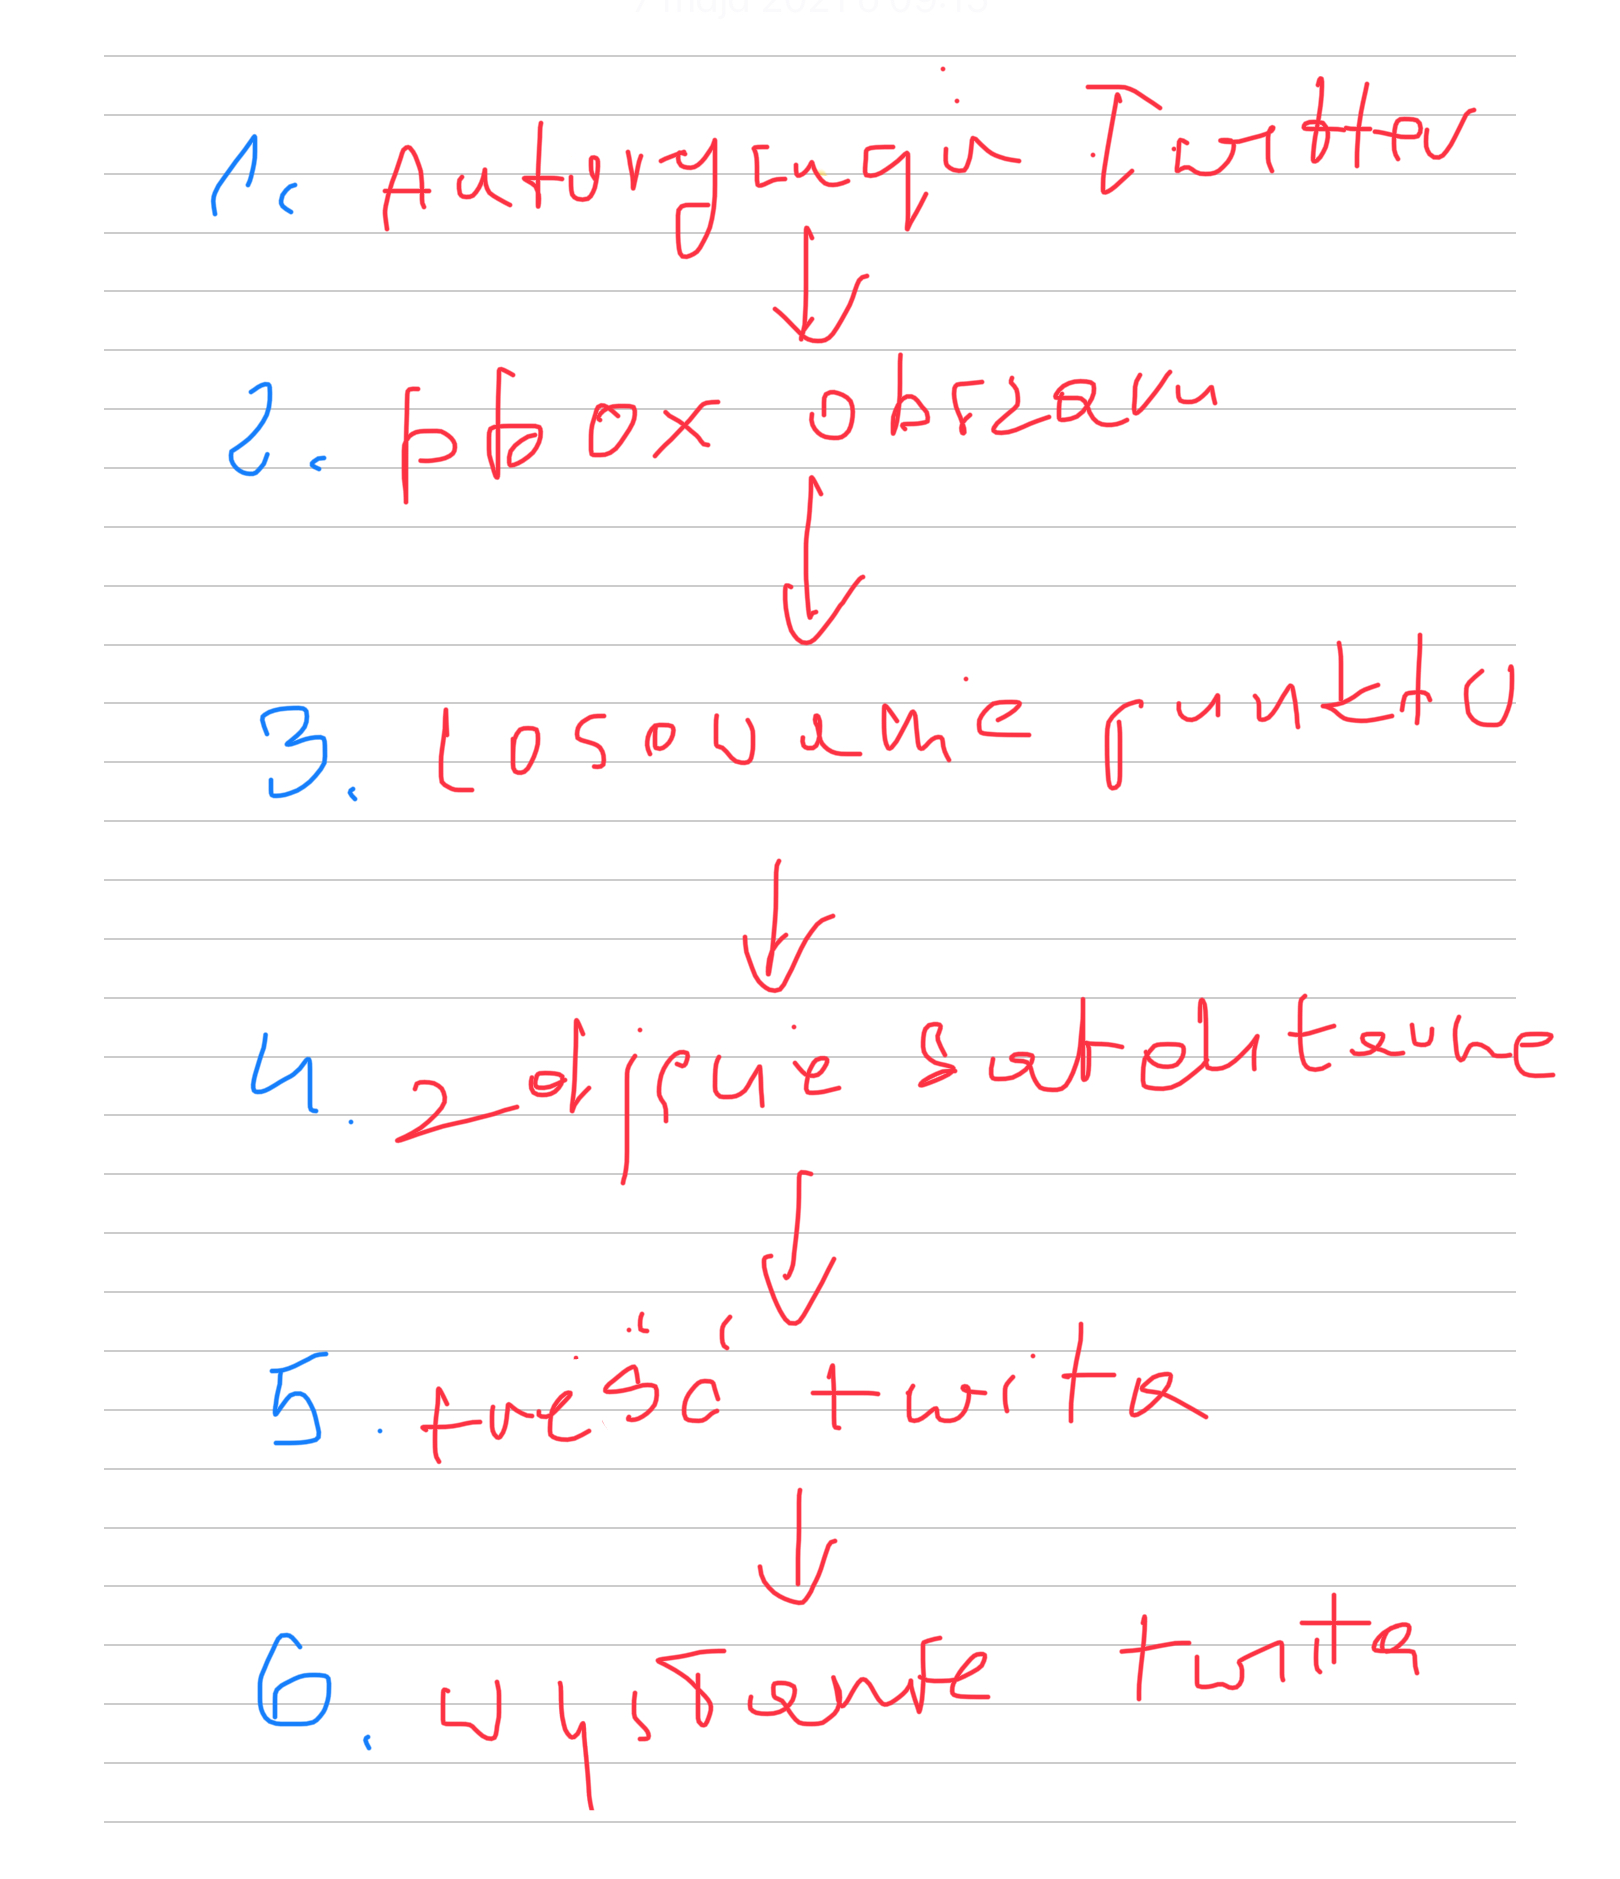 7 maja 2021 o 09:15
1. Autoryzacja Twitter
2. bbox obszaru
3. Losowanie punktu
4. Zdjęcie satelitarne
5. treść twita
6. wysłanie twita